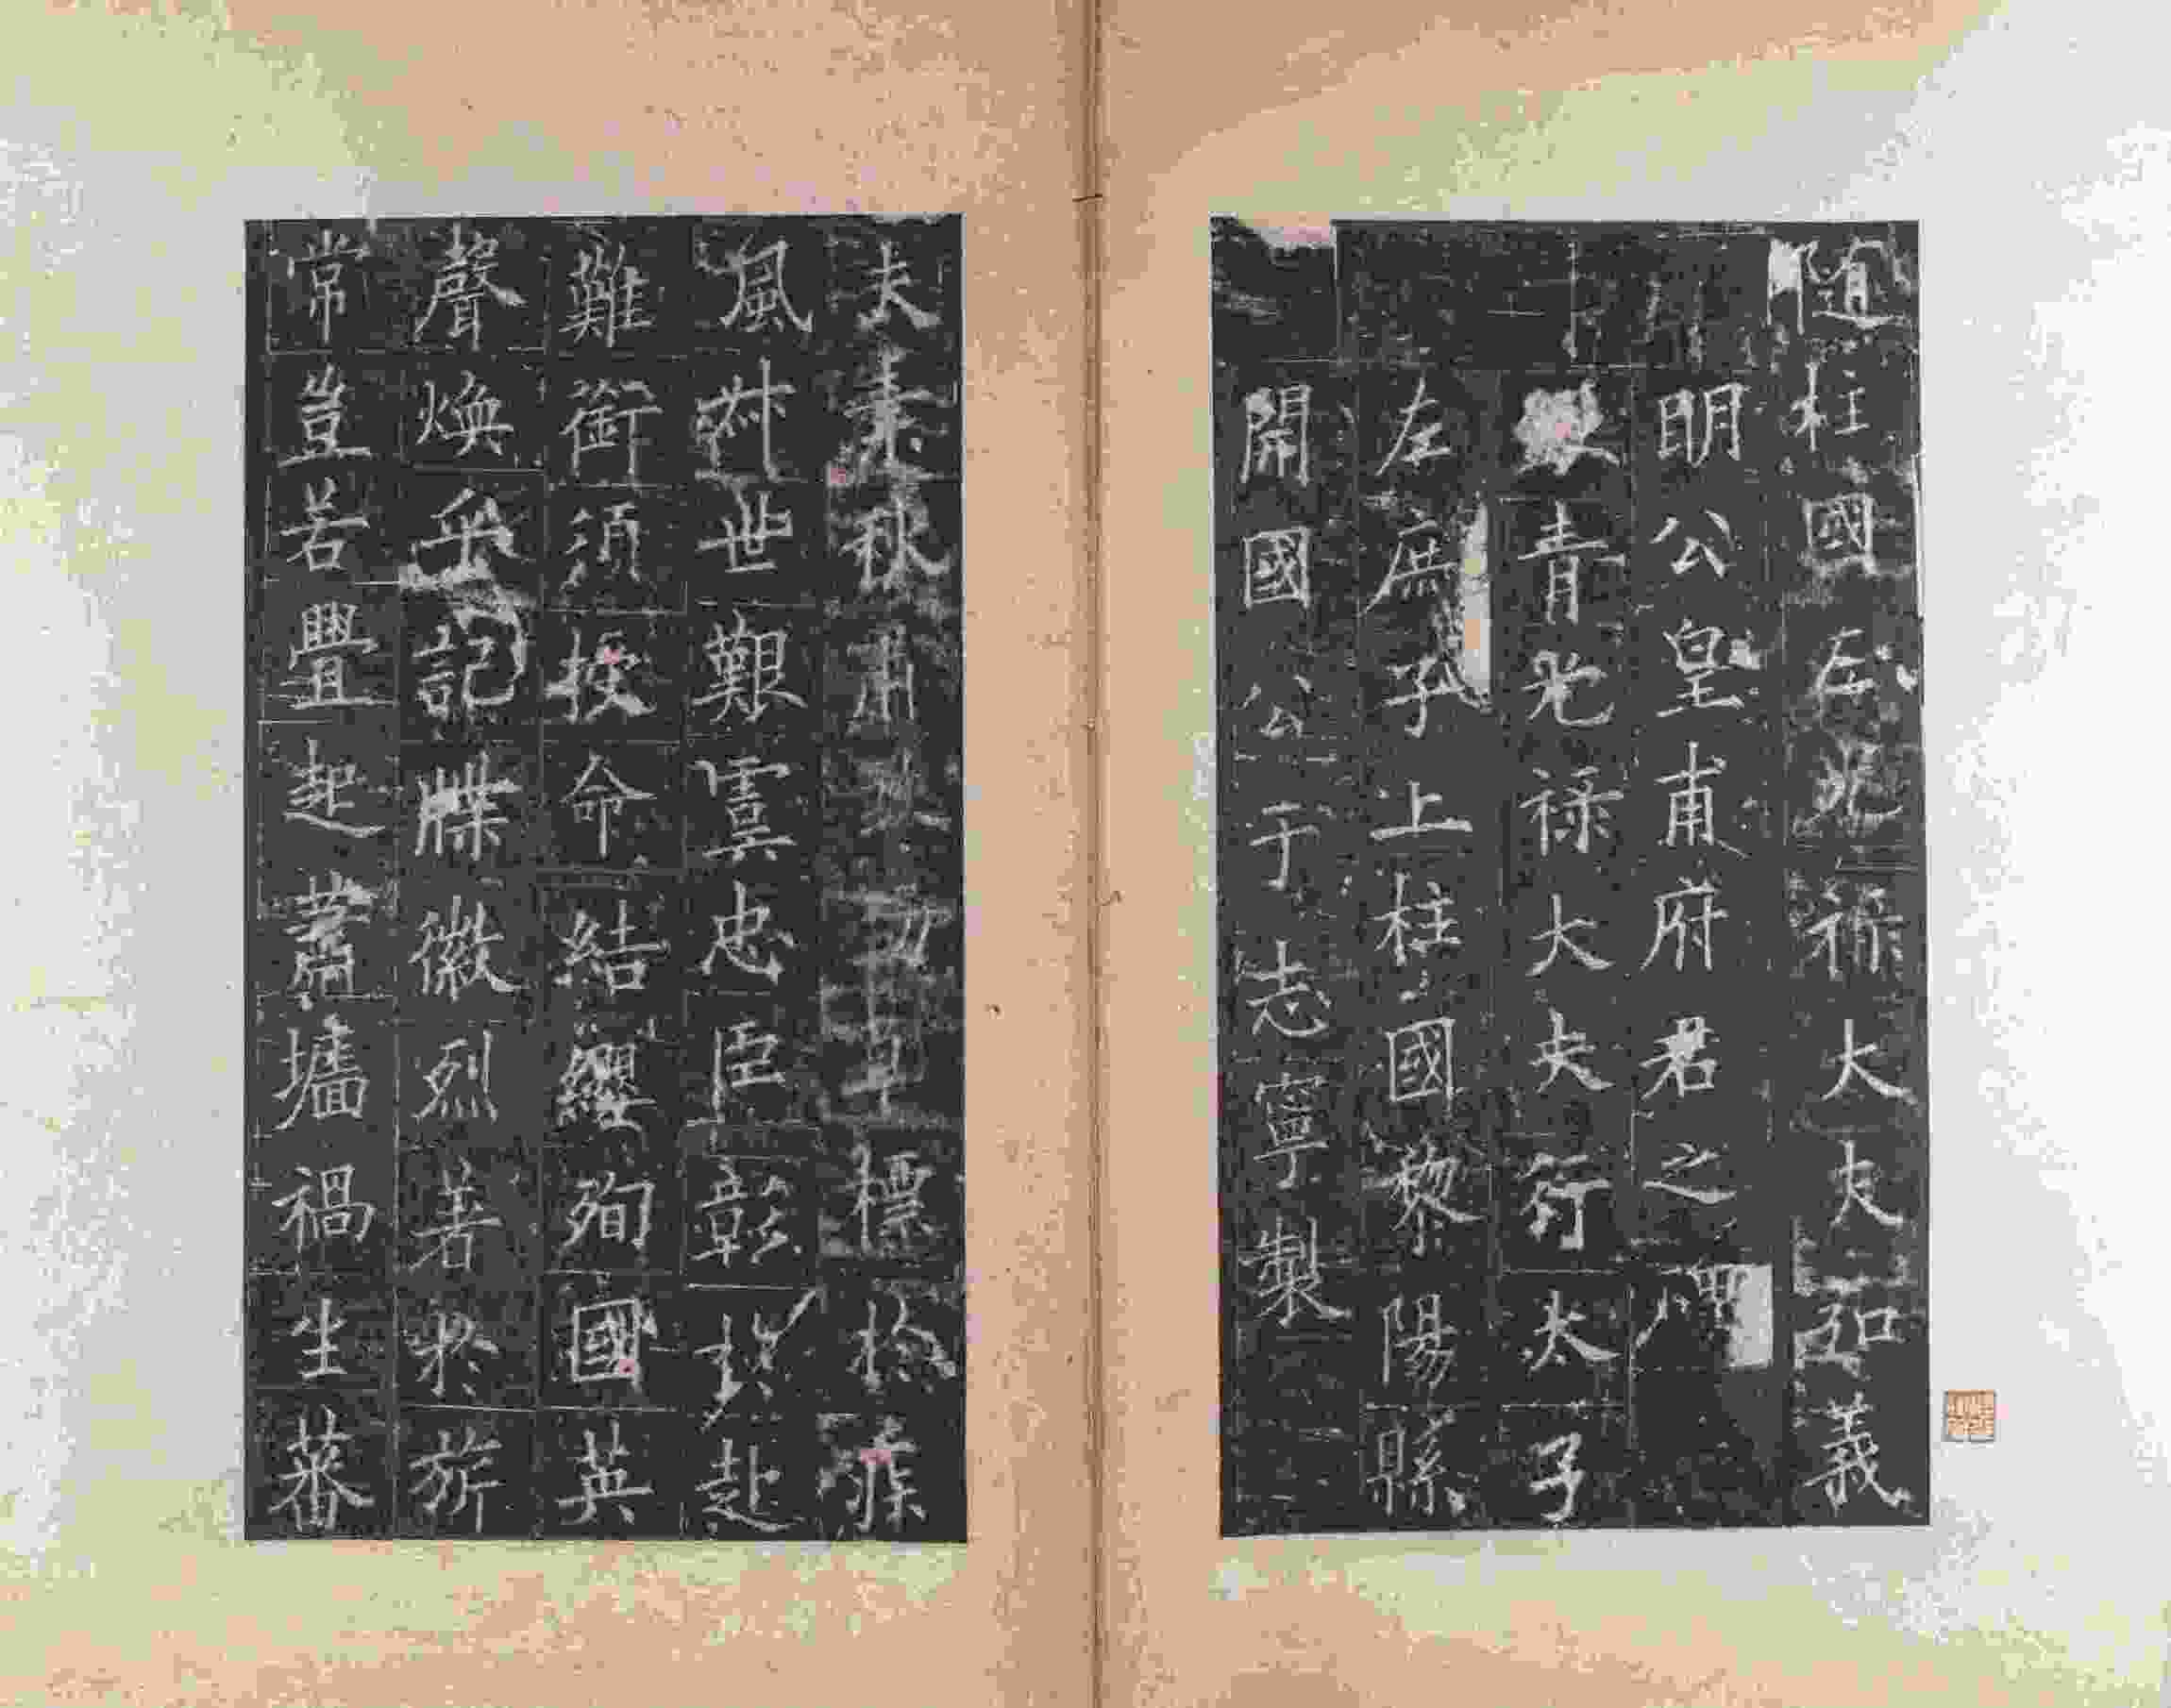 隨柱國左光祿大夫弘義
明公皇甫府君之碑
銀青光祿大夫行太子
左庶子上柱國黎陽縣
開國公于志寧製
夫素秋肅煞勁草標於疾
風叔世艱虞忠臣彰於赴
難銜須授命結纓殉國英
聲煥乎記牒徽烈著於旂
常豈若釁起蕭墻禍生蕃